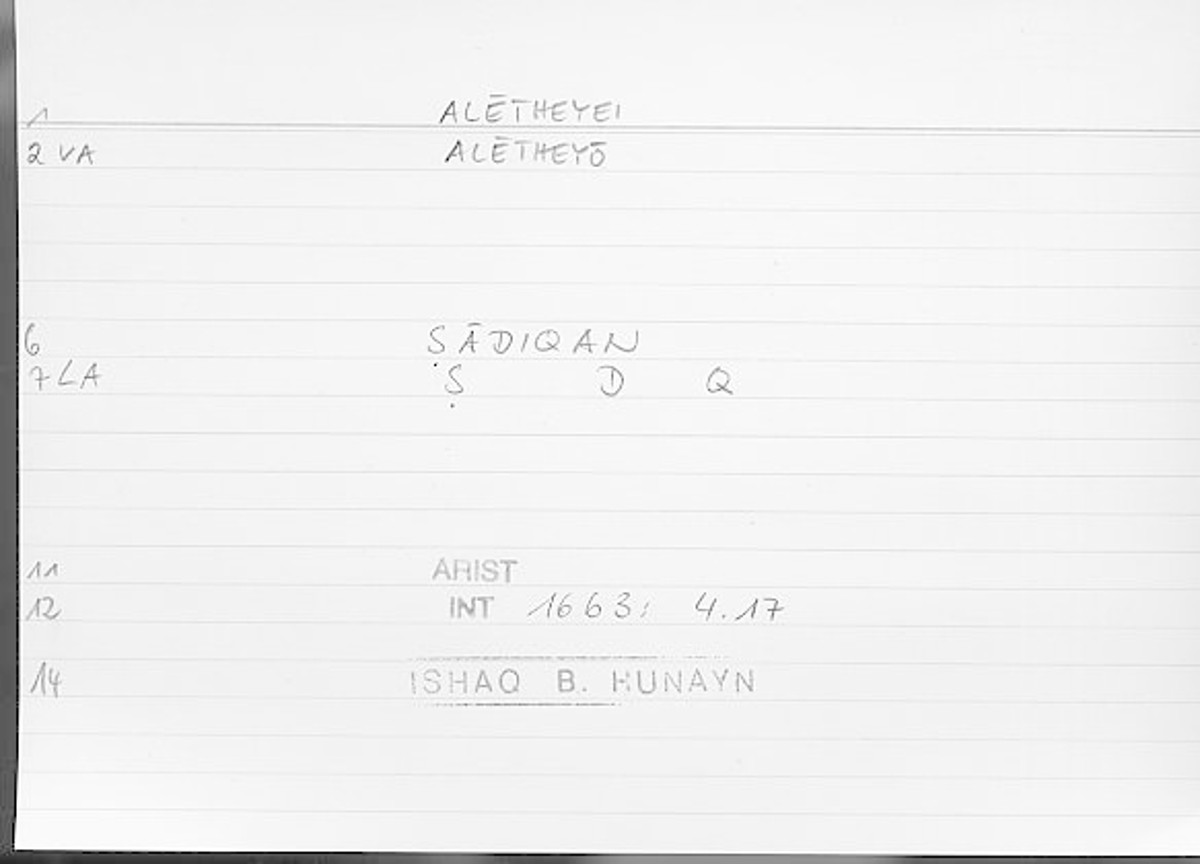 1 ALĒTHEYEI
2 VA ALĒTHEYŌ
6 ṢĀDIQAN
7 LA Ṣ D Q
11 ARIST
12 INT 1663: 4.17
14 ISHAQ B. HUNAYN